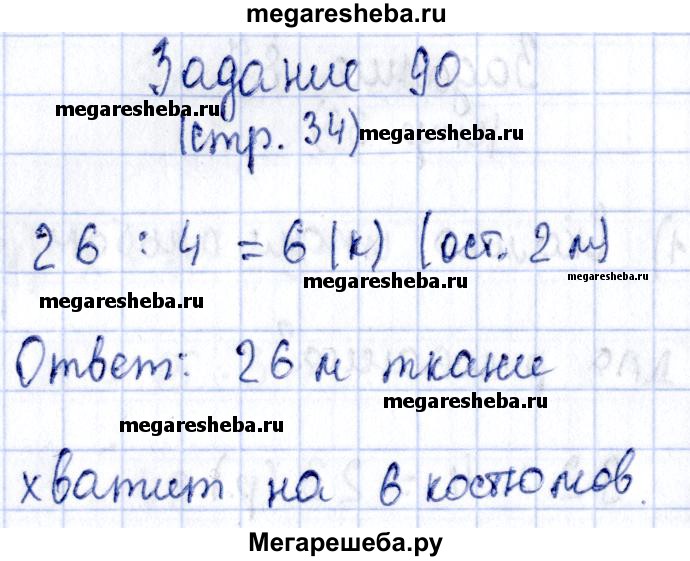 megaresheba.ru
Задание 90
megaresheba.ru
(стр. 34) megaresheba.ru
26 : 4 = 6 (к) (ост. 2 м)
megaresheba.ru megaresheba.ru megaresheba.ru
Ответ: 26 м ткани
megaresheba.ru megaresheba.ru
хватит на 6 костюмов.
Мегарешеба.ру